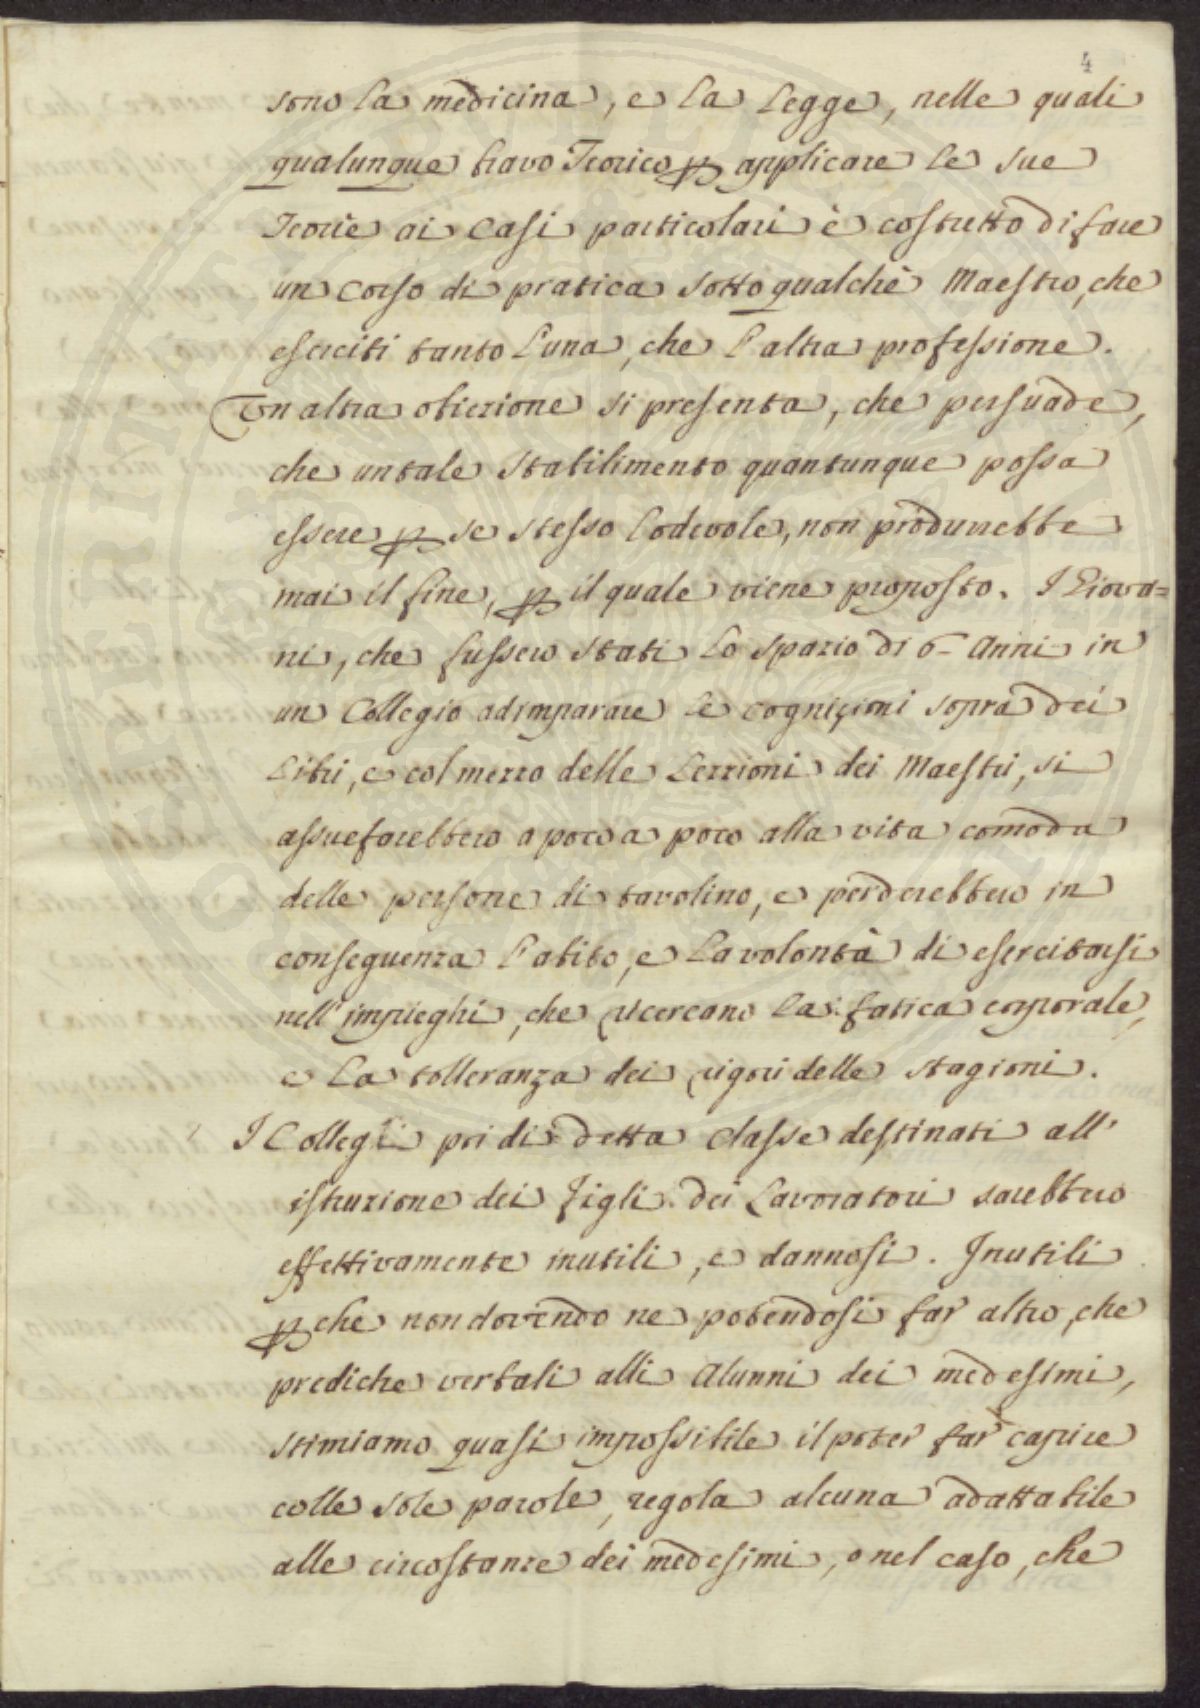 4
sono la medicina, e la Legge, nelle quali
qualunque bravo Teorico p applicare le sue
Teorie ai Casi particolari è costretto di fare
un corso di pratica sotto qualche Maestro, che
eserciti tanto l'una, che l'altra professione.
Un altra obiezione si presenta, che persuade,
che un tale stabilimento quantunque possa
essere p se stesso lodevole, non produrrebbe
mai il fine, p il quale viene proposto. I Giova=
ni, che fussero stati lo spazio di 6 Anni in
un Collegio ad imparare le cognizioni sopra dei
Libri, e col mezzo delle Lezzioni dei Maestri, si
assuefarebbero a poco a poco alla vita comoda
delle persone di tavolino, e perderebbero in
conseguenza l'abito, e la volontà di esercitarsi
nell'impieghi, che ricercano la fatica corporale,
e la tolleranza dei rigori delle stagioni.
I Collegi poi di detta classe destinati all'
istruzione dei figli dei Lavoratori sarebbero
effettivamente inutili, e dannosi. Inutili
p che non dovendo ne potendosi far altro, che
prediche verbali alli Alunni dei medesimi,
stimiamo quasi impossibile il poter far capire
colle sole parole, regola alcuna adattabile
alle circostanze dei medesimi, o nel caso, che